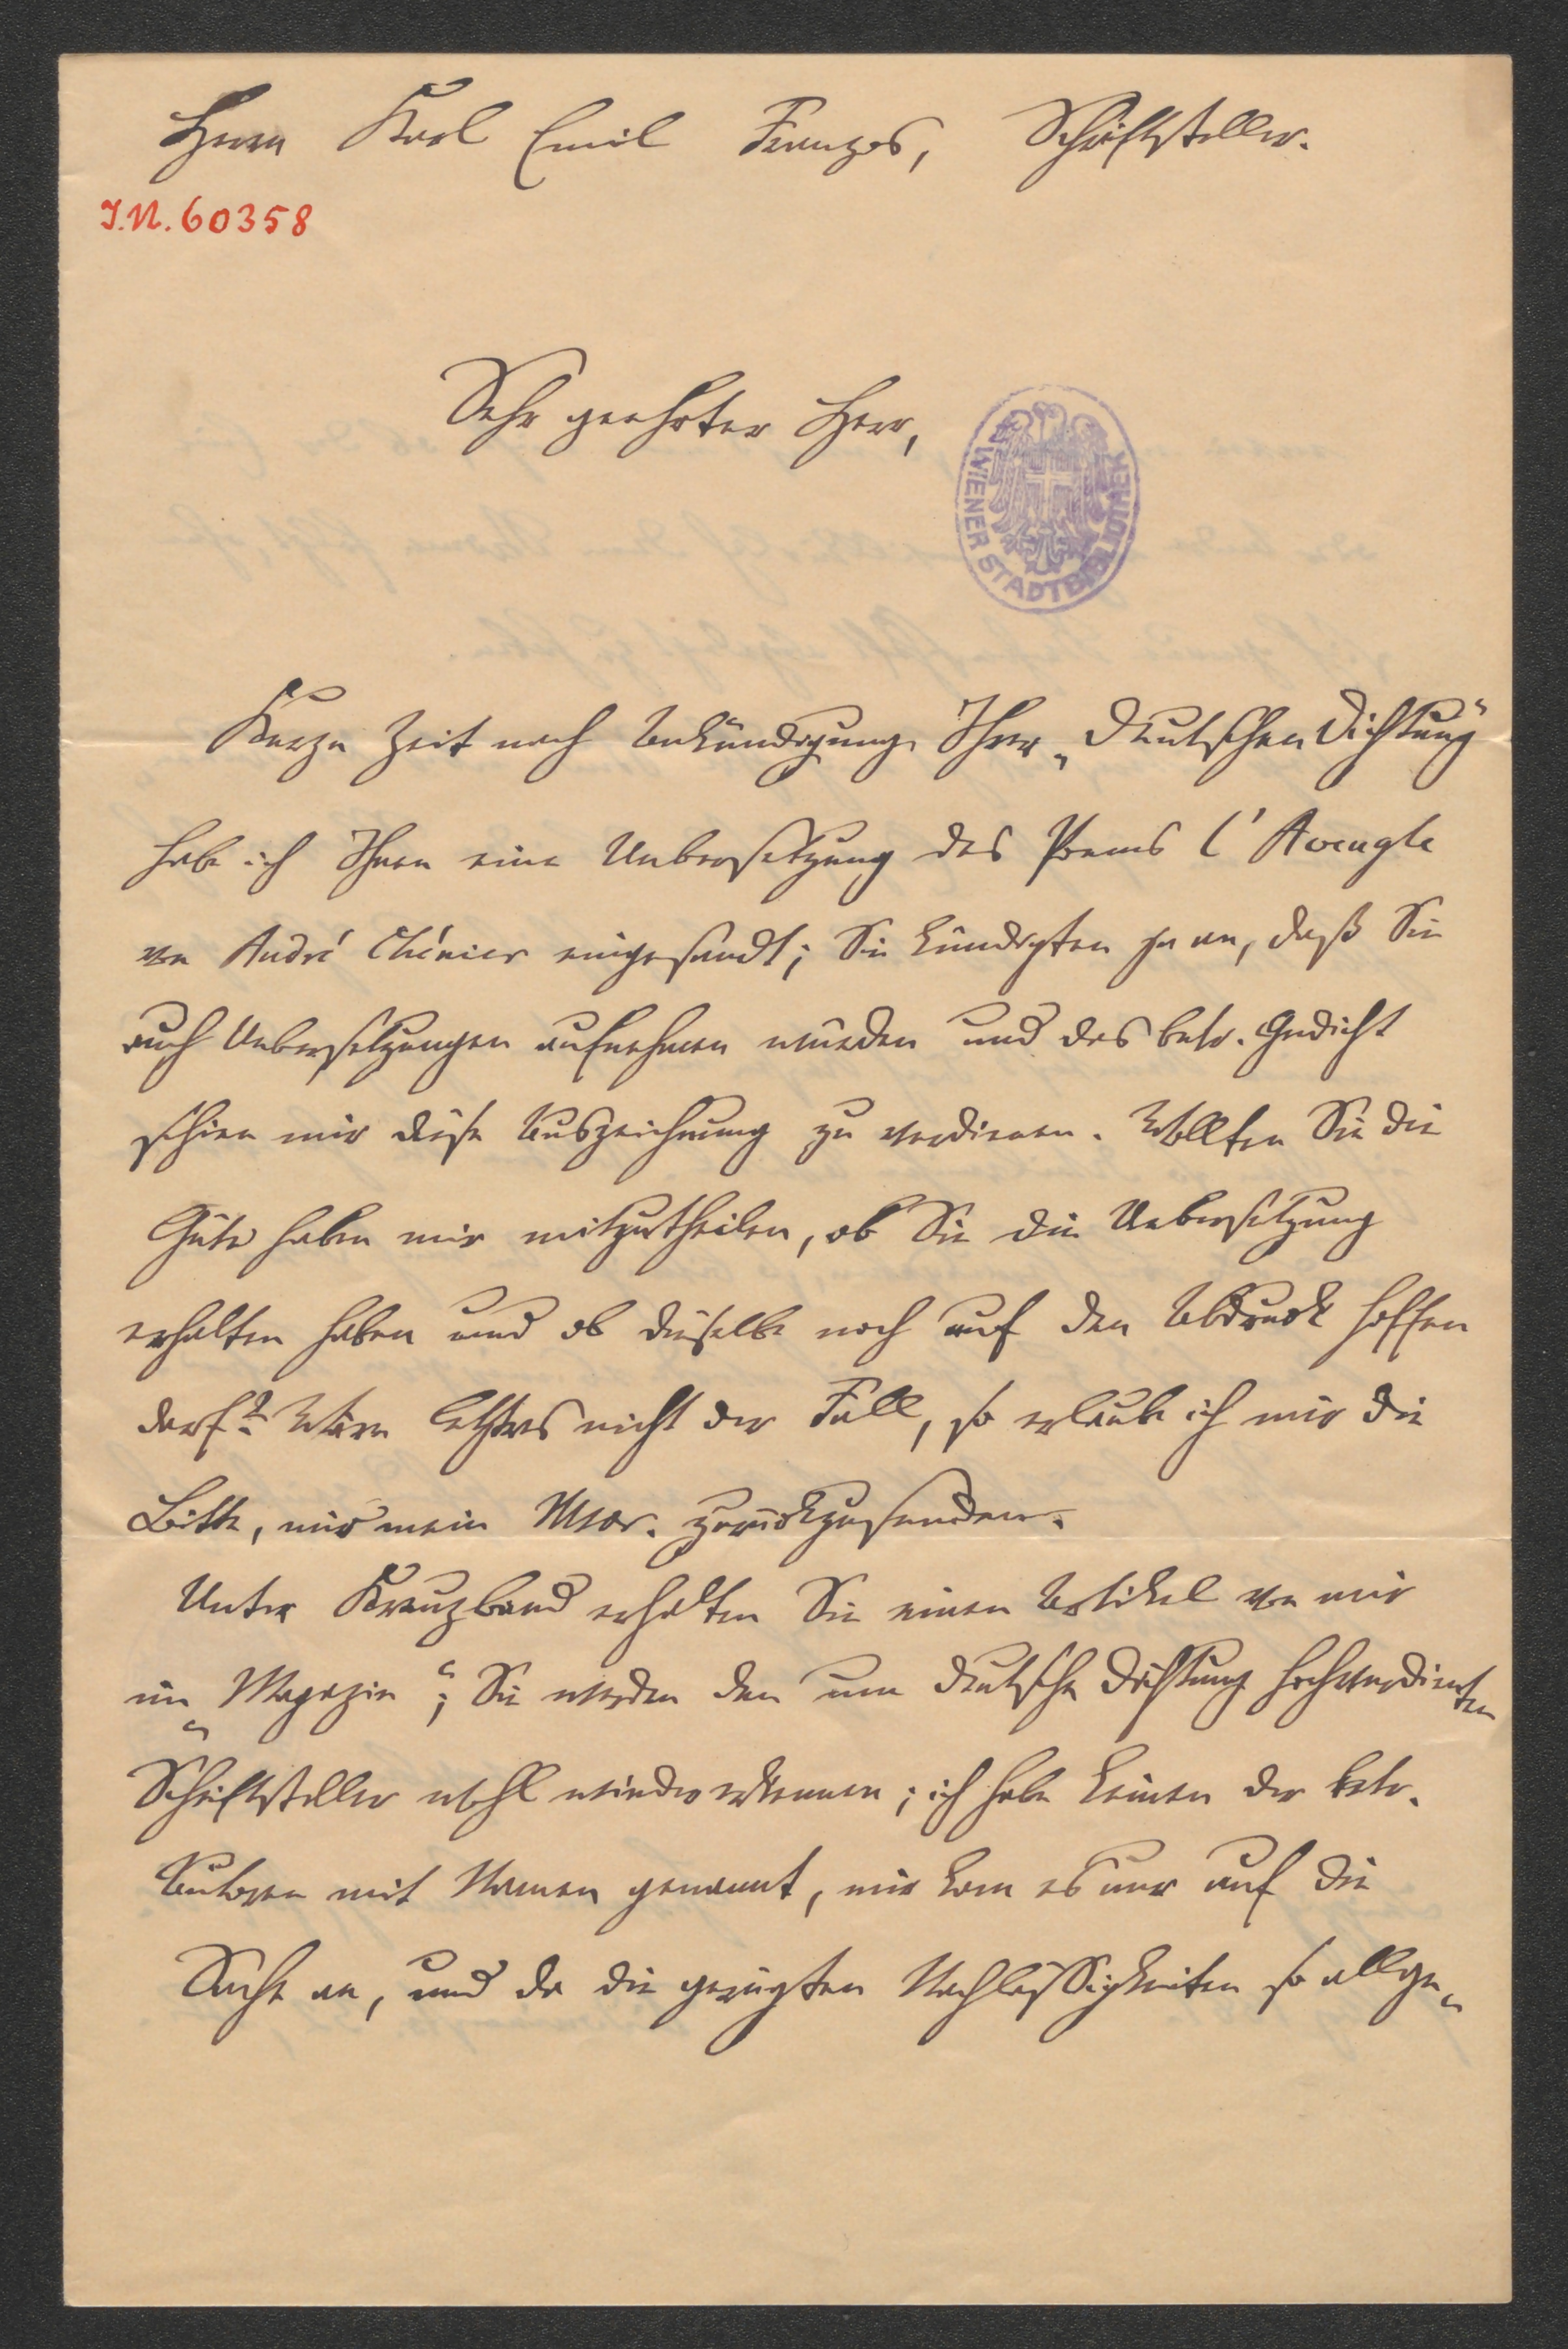 Herrn Karl Emil Franzos, Schriftsteller.
I.N. 60358
Sehr geehrter Herr,
WIENER STADTBIBLIOTHEK
Kurze Zeit nach Ankündigung Ihrer „Deutschen Dichtung“
habe ich Ihnen eine Uebersetzung des Poems l'Aveugle
von André Chénier eingesandt; Sie kündigten ja an, daß Sie
auch Uebersetzungen aufnehmen würden und das betr. Gedicht
schien mir diese Auszeichnung zu verdienen. Wollten Sie die
Güte haben mir mitzutheilen, ob Sie die Uebersetzung
erhalten haben und ob dieselbe noch auf den Abdruck hoffen
darf? Wäre letztres nicht der Fall, so erlaube ich mir die
Bitte, mir mein Mscr. zurückzusenden.
Unter Kreuzband erhalten Sie einen Artikel von mir
im „Magazin“; Sie werden den um deutsche Dichtung hochverdienten
Schriftsteller wohl wiedererkennen; ich habe keinen der betr.
Autoren mit Namen genannt, mir kam es nur auf die
Sache an, und da die gerügten Nachlässigkeiten so allge-